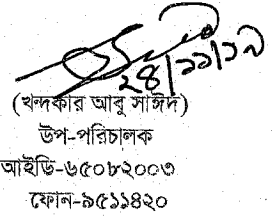 ২৪/১১/১৯
(খন্দকার আবু সাঈদ)
উপ-পরিচালক
আইডি-৬৫০৮২০০৩
ফোন-৯৫১১৪২০